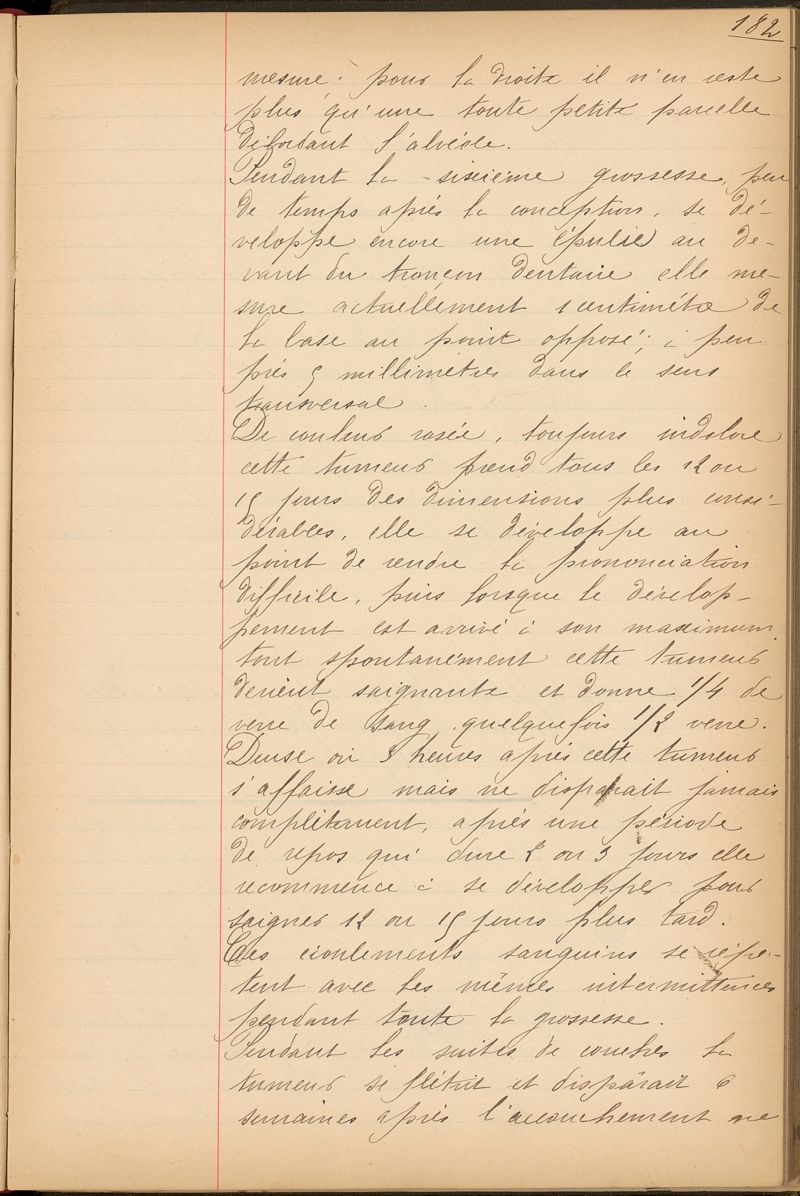 182
mesure ; pour la droite il n'en reste
plus qu'une toute petite parcelle
débordant l'alvéole.
Pendant la sixième grossesse, peu
de temps après la conception, se dé-
veloppe encore une épulie au de-
vant du tronçon dentaire elle me-
sure actuellement 1 centimètre de
la base au point opposé ; à peu
près 5 millimètres dans le sens
transversal.
De couleur rosée, toujours indolore
cette tumeur prend tous les 12 ou
15 jours des dimensions plus consi-
dérables, elle se développe au
point de rendre la prononciation
difficile, puis lorsque le dévelop-
pement est arrivé à son maximum
tout spontanément cette tumeur
devient saignante et donne 1/4 de
verre de sang quelquefois 1/2 verre.
Deuse ou 3 heures après cette tumeur
s'affaisse mais ne disparait jamais
complètement, après une période
de repos qui dure 2 ou 3 jours elle
recommence à se développer pour
saigner 12 ou 15 jours plus tard.
Ces écoulements sanguins se répè-
tent avec les mêmes intermittences
pendant toute la grossesse.
Pendant les suites de couches la
tumeur se flétrit et disparait 6
semaines après l'accouchement ne